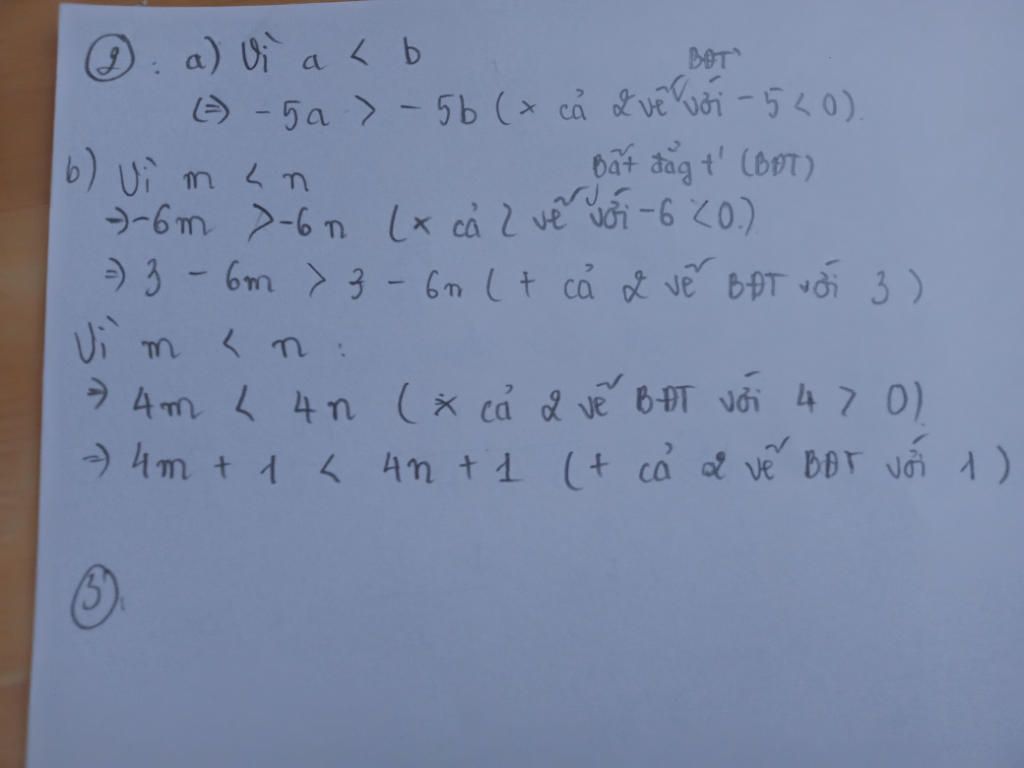 2. a) Vì a < b
BĐT
(=> -5a > -5b (x cả 2 vế với -5 < 0).
b) Vì m < n
Bất đẳg t' (BĐT)
=> -6m > -6n (x cả 2 vế với -6 < 0.)
=> 3 - 6m > 3 - 6n (+ cả 2 vế BĐT với 3)
Vì m < n :
=> 4m < 4n (x cả 2 vế BĐT với 4 > 0)
=> 4m + 1 < 4n + 1 (+ cả 2 vế BĐT với 1)
3.